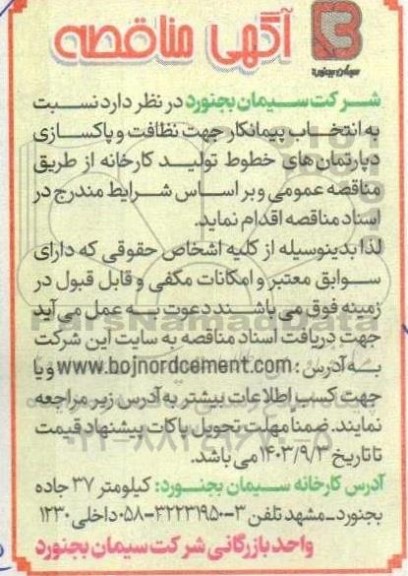 آگهی مناقصه
سیمان بجنورد
شرکت سیمان بجنورد در نظر دارد نسبت
به انتخاب پیمانکار جهت نظافت و پاکسازی
دپارتمان های خطوط تولید کارخانه از طریق
مناقصه عمومی و بر اساس شرایط مندرج در
اسناد مناقصه اقدام نماید.
لذا بدینوسیله از کلیه اشخاص حقوقی که دارای
سوابق معتبر و امکانات مکفی و قابل قبول در
زمینه فوق می باشند دعوت به عمل می آید
جهت دریافت اسناد مناقصه به سایت این شرکت
به آدرس : www.bojnordcement.com و یا
جهت کسب اطلاعات بیشتر به آدرس زیر مراجعه
نمایند. ضمنا مهلت تحویل پاکات پیشنهاد قیمت
تا تاریخ ۱۴۰۳/۹/۳ می باشد.
آدرس کارخانه سیمان بجنورد: کیلومتر ۳۷ جاده
بجنورد-مشهد تلفن ۳-۳۲۲۳۱۹۵۰-۰۵۸ داخلی ۱۲۳۰
واحد بازرگانی شرکت سیمان بجنورد
ParsNamadData
۰۲۱-۸۸۳۴۹۶۷۰-۵